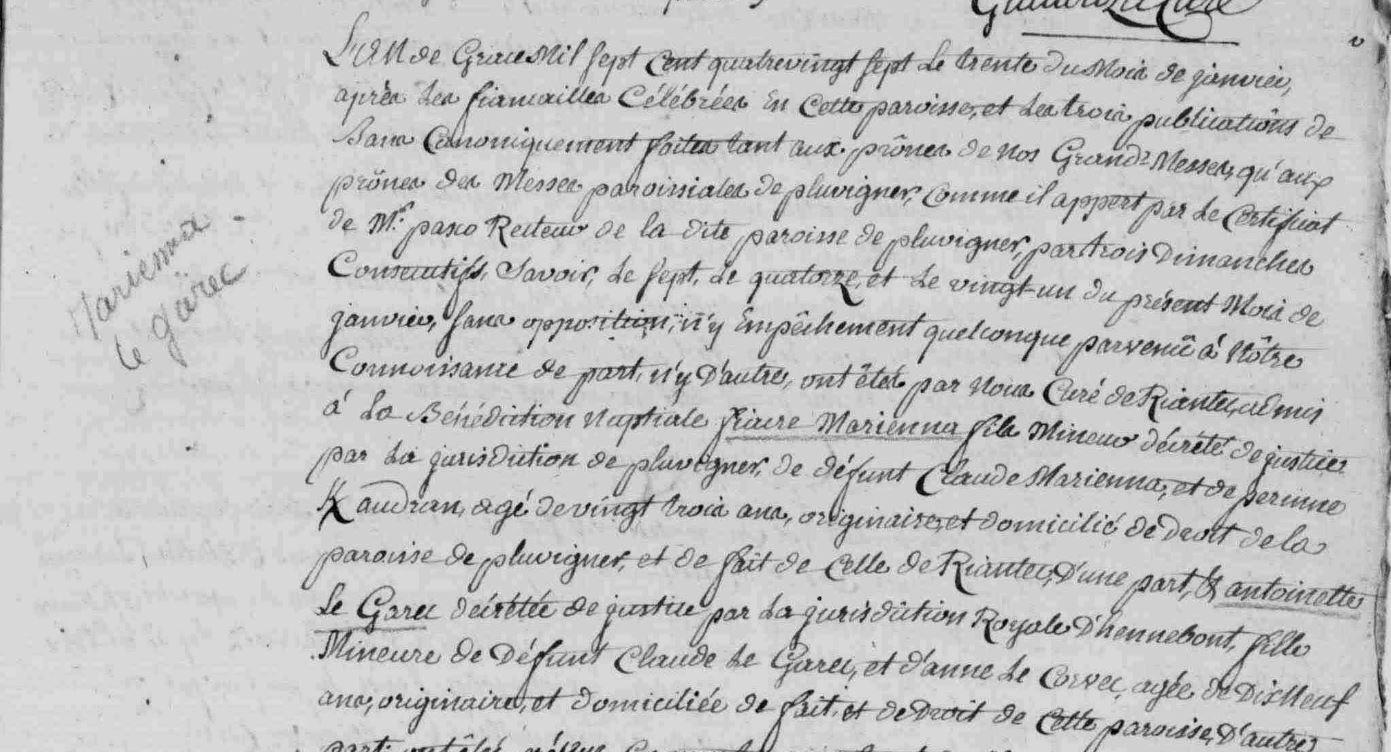 L'an de Grace Mil sept cent quatrevingt sept le trente du Mois de janvier,
après les fiancailles Célébrées En Cette paroisse, et les trois publications de
bans Canoniquement faites tant aux prônes de nos Grandes Messes, qu'aux
prônes des Messes paroissiales de pluvigner, Comme il appert par le Certificat
de Mr. pasco Recteur de la dite paroisse de pluvigner, par trois Dimanches
Consecutifs, Savoir, le sept, le quatorze, et le vingt un du présent Mois de
janvier, sans opposition, n'y Empêchement quelconque parvenû à Nôtre
Connoissance de part, n'y D'autre, ont êtés par Nous Curé de Riantec, admis
Marienna
le garec
à la Bénédiction Nuptiale fiacre Marienna fils Mineur décrété de justice
par la jurisdiction de pluvigner, de défunt Claude Marienna, et de perinne
K audran, agé de vingt trois ans, originaire, et domicilié de Droit de la
paroisse de pluvigner, et de fait de Celle de Riantec, D'une part, & antoinette
Le Garec décrétée de justice par la jurisdiction Royale D'hennebont, fille
Mineure de Défunt Claude Le Garec, et d'anne Le Corvec, agée de DixNeuf
ans, originaire, et domiciliée de fait, et de Droit de Cette paroisse, D'autre
part; ont êtés